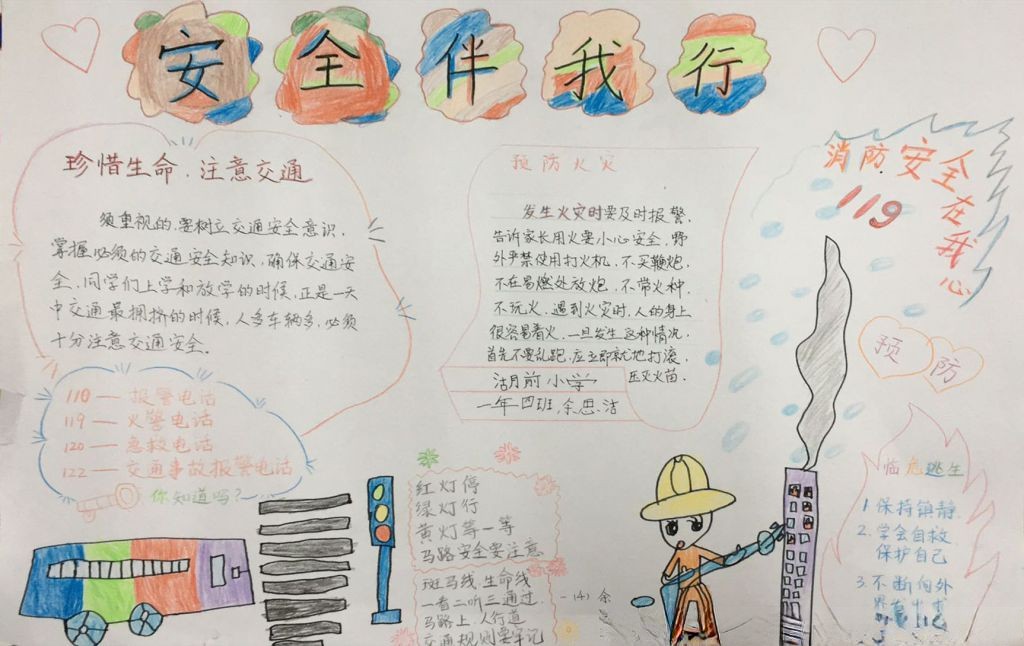 安全伴我行
珍惜生命、注意交通
须重视的,要树立交通安全意识,
掌握必须的交通安全知识,确保交通安
全,同学们上学和放学的时候,正是一天
中交通最拥挤的时候,人多车辆多,必须
十分注意交通安全。
110 — 报警电话
119 — 火警电话
120 — 急救电话
122 — 交通事故报警电话
你知道吗?
预防火灾
发生火灾时要及时报警,
告诉家长用火要小心安全,野
外严禁使用打火机,不买鞭炮,
不在易燃处放炮,不带火种,
不玩火,遇到火灾时,人的身上
很容易着火,一旦发生这种情况,
首先不要乱跑,应立即就地打滚,
压灭火苗.
沽月前小学
一年四班,余思洁
红灯停
绿灯行
黄灯等一等
马路安全要注意
斑马线,生命线
一看二听三通过,
马路上,人行道
交通规则要牢记
(4) 余
消防安全在我心
119
预防
临危逃生
1.保持镇静.
2.学会自救,
保护自己
3.不断向外